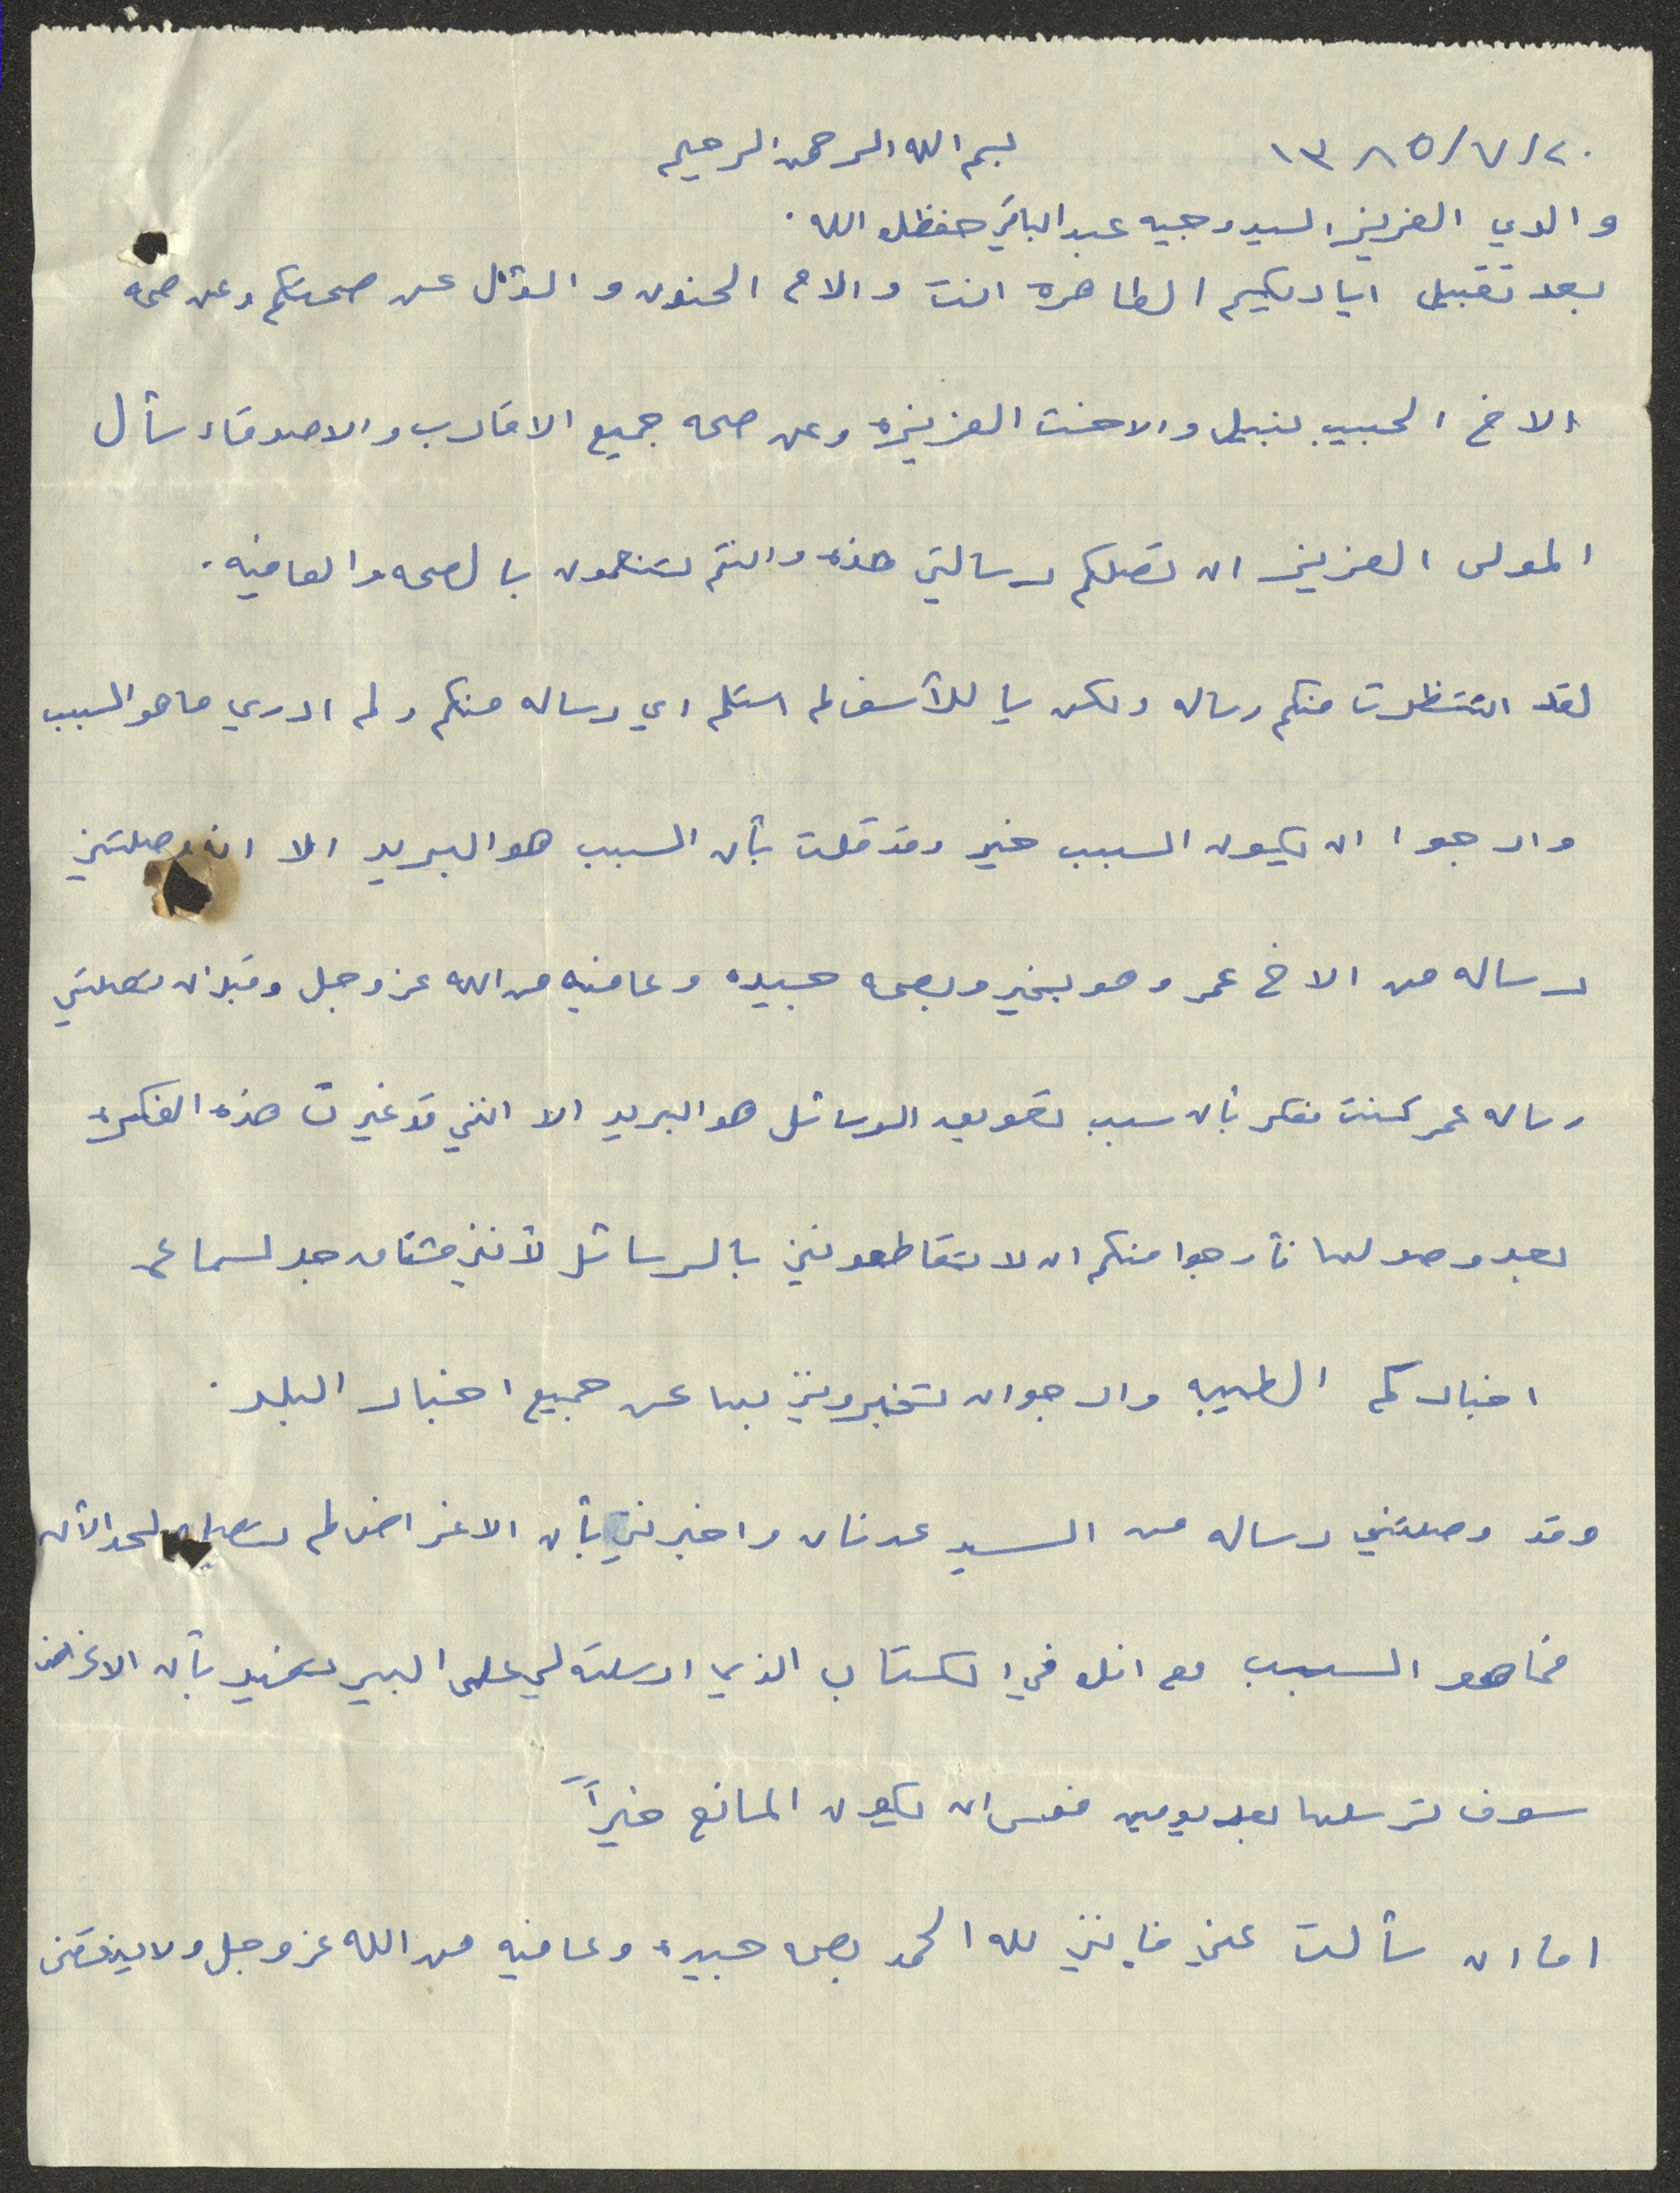 ٢٠/٧/١٣٨٥ بسم الله الرحمن الرحيم
والدي العزيز السيد وجيه عبد الباقي حفظك الله .
بعد تقبيل اياديكم الطاهره انت والام الحنون والسؤال عن صحتكم وعن صحه
الاخ الحبيب نبيل والاخت العزيزه وعن صحه جميع الاقارب والاصدقاء سأل
المولى العزيز ان تصلكم رسالتي هذه وانتم تتنعمون بالصحه والعافيه .
لقد انتظرت منكم رساله ولكن يا للأسف لم استلم اي رساله منكم ولم ادري ما هو السبب
وارجوا ان يكون السبب خير وقد قلت بأن السبب هو البريد الا انه وصلتني
رساله من الاخ عمر وهو بخير وبصحه جيده وعافيه من الله عز وجل وقبل ان تصلني
رساله عمر كنت مفكر بأن سبب تعويق الرسائل هو البريد الا انني قد غيرت هذه الفكره
بعد وصولها فأرجوا منكم ان لا تقاطعونني بالرسائل لأنني مشتاق جد لسماع
اخباركم الطيبه وارجوا ان تخبرونني بها عن جميع اخبار البلد .
وقد وصلتني رساله من السيد عدنان واخبرني بأن الاغراض لم تصله لحد الأن
فما هو السبب مع انك في الكتاب الذي ارسلته لي على البير تخبر بأن الاغراض
سوف ترسلها بعد يومين فعسى ان يكون المانع خيراً
اما ان سألت عني فإنني لله الحمد بصحه جيده وعافيه من الله عز وجل ولا ينقصني